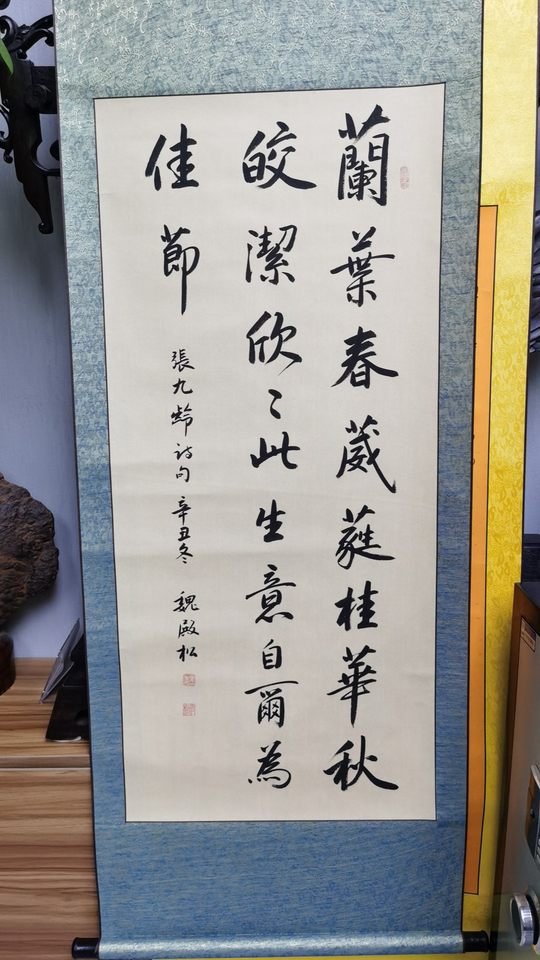 蘭葉春葳蕤桂華秋
皎潔欣〻此生意自爾為
佳節
張九齡詩句 辛丑冬 魏殿松